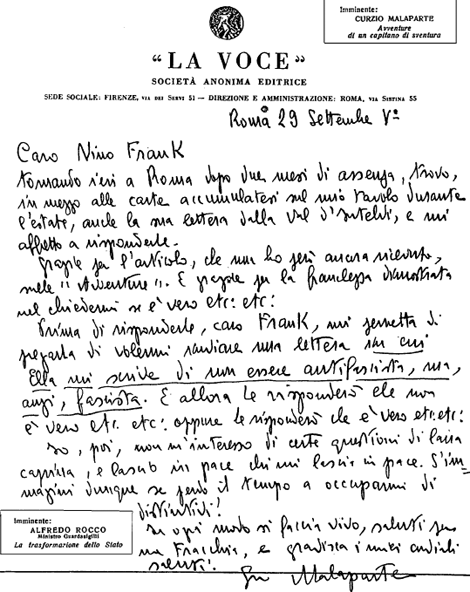 Imminente:
CURZIO MALAPARTE
Avventure
di un capitano di sventura
"LA VOCE"
SOCIETÀ ANONIMA EDITRICE
SEDE SOCIALE: FIRENZE, VIA DEI SERVI 51 — DIREZIONE E AMMINISTRAZIONE: ROMA, VIA SISTINA 55
Roma 29 Settembre V°
Caro Nino Frank
tornando ieri a Roma dopo due mesi di assenza, trovo,
in mezzo alle carte accumulatesi sul mio tavolo durante
l'estate, anche la sua lettera dalla Val d'Intelvi, e mi
affretto a risponderle.
Grazie per l'articolo, che non ho però ancora ricevuto,
sulle "Avventure". E grazie per la franchezza dimostrata
nel chiedermi se è vero etc: etc:
Prima di risponderle, caro Frank, mi permetta di
pregarla di volermi mandare una lettera in cui
Ella mi scrive di non essere antifascista, ma,
anzi, fascista. E allora le risponderò che non
è vero etc. etc: oppure le risponderò che è vero etc: etc:
Io, poi, non m'interesso di certe questioni di lana
caprina, e lascio in pace chi mi lascia in pace. S'im-
magini dunque se perdo il tempo a occuparmi di
Ad ogni modo si faccia vivo, saluti
Fracchia, e gradisca i miei cordiali
saluti.
Malaparte
Imminente:
ALFREDO ROCCO
Ministro Guardasigilli
La trasformazione dello Stato